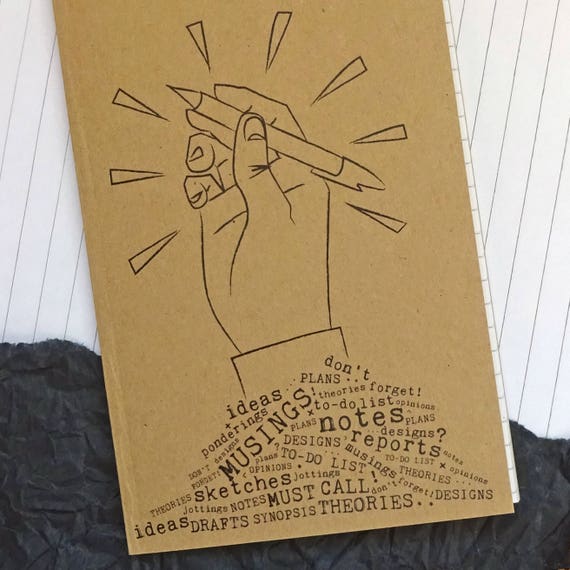 don't
PLANS . .
theories forget!
ideas
to-do list opinions
ponderings
MUSINGS!
PLANS notes PLANS
designs?
DON'T designs
DESIGNS reports notes
FORGET!
plans TO-DO LIST musings TO-DO LIST x opinions
OPINIONS .
sketches jottings THEORIES ...
THEORIES
jottings NOTES MUST CALL! don't forget! DESIGNS
ideas DRAFTS SYNOPSIS THEORIES . .